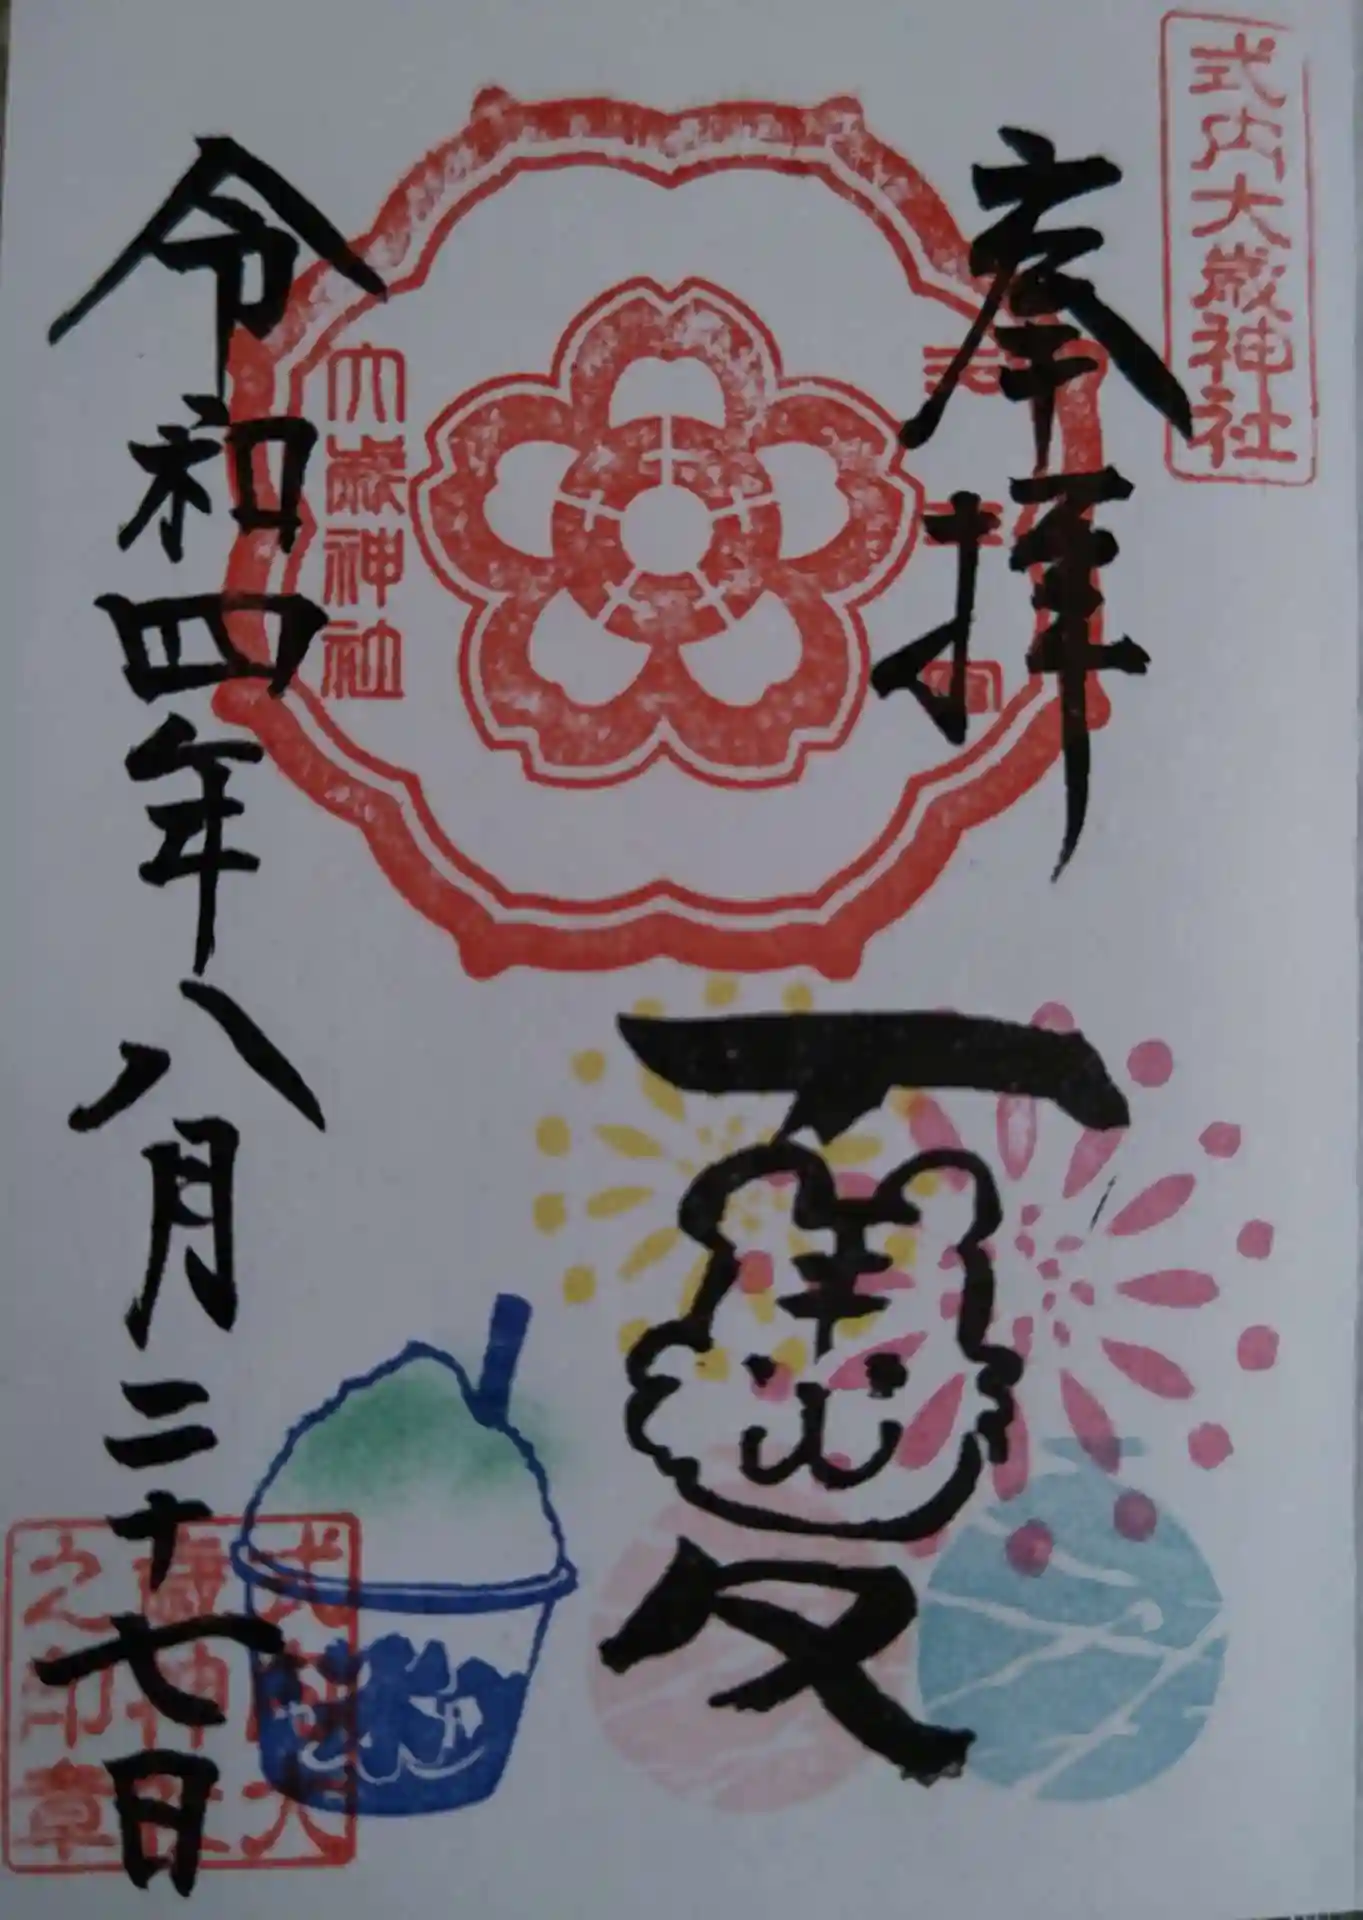 式内大歳神社
奉拝
大歳神社
夏
令和四年八月二十七日
式内大
歳神社
之印章